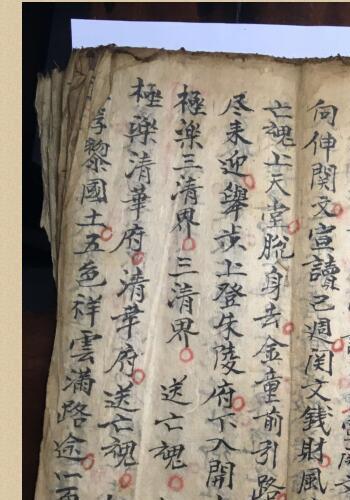 向伸関文宣讀已週関文錢財風
亡魂上天堂脫身去金童前引路
尽来迎舉步上登朱陵府下入開
極楽三清界三清界送亡魂
極楽清華府清華府送亡魂
黍國土五色祥雲滿路途